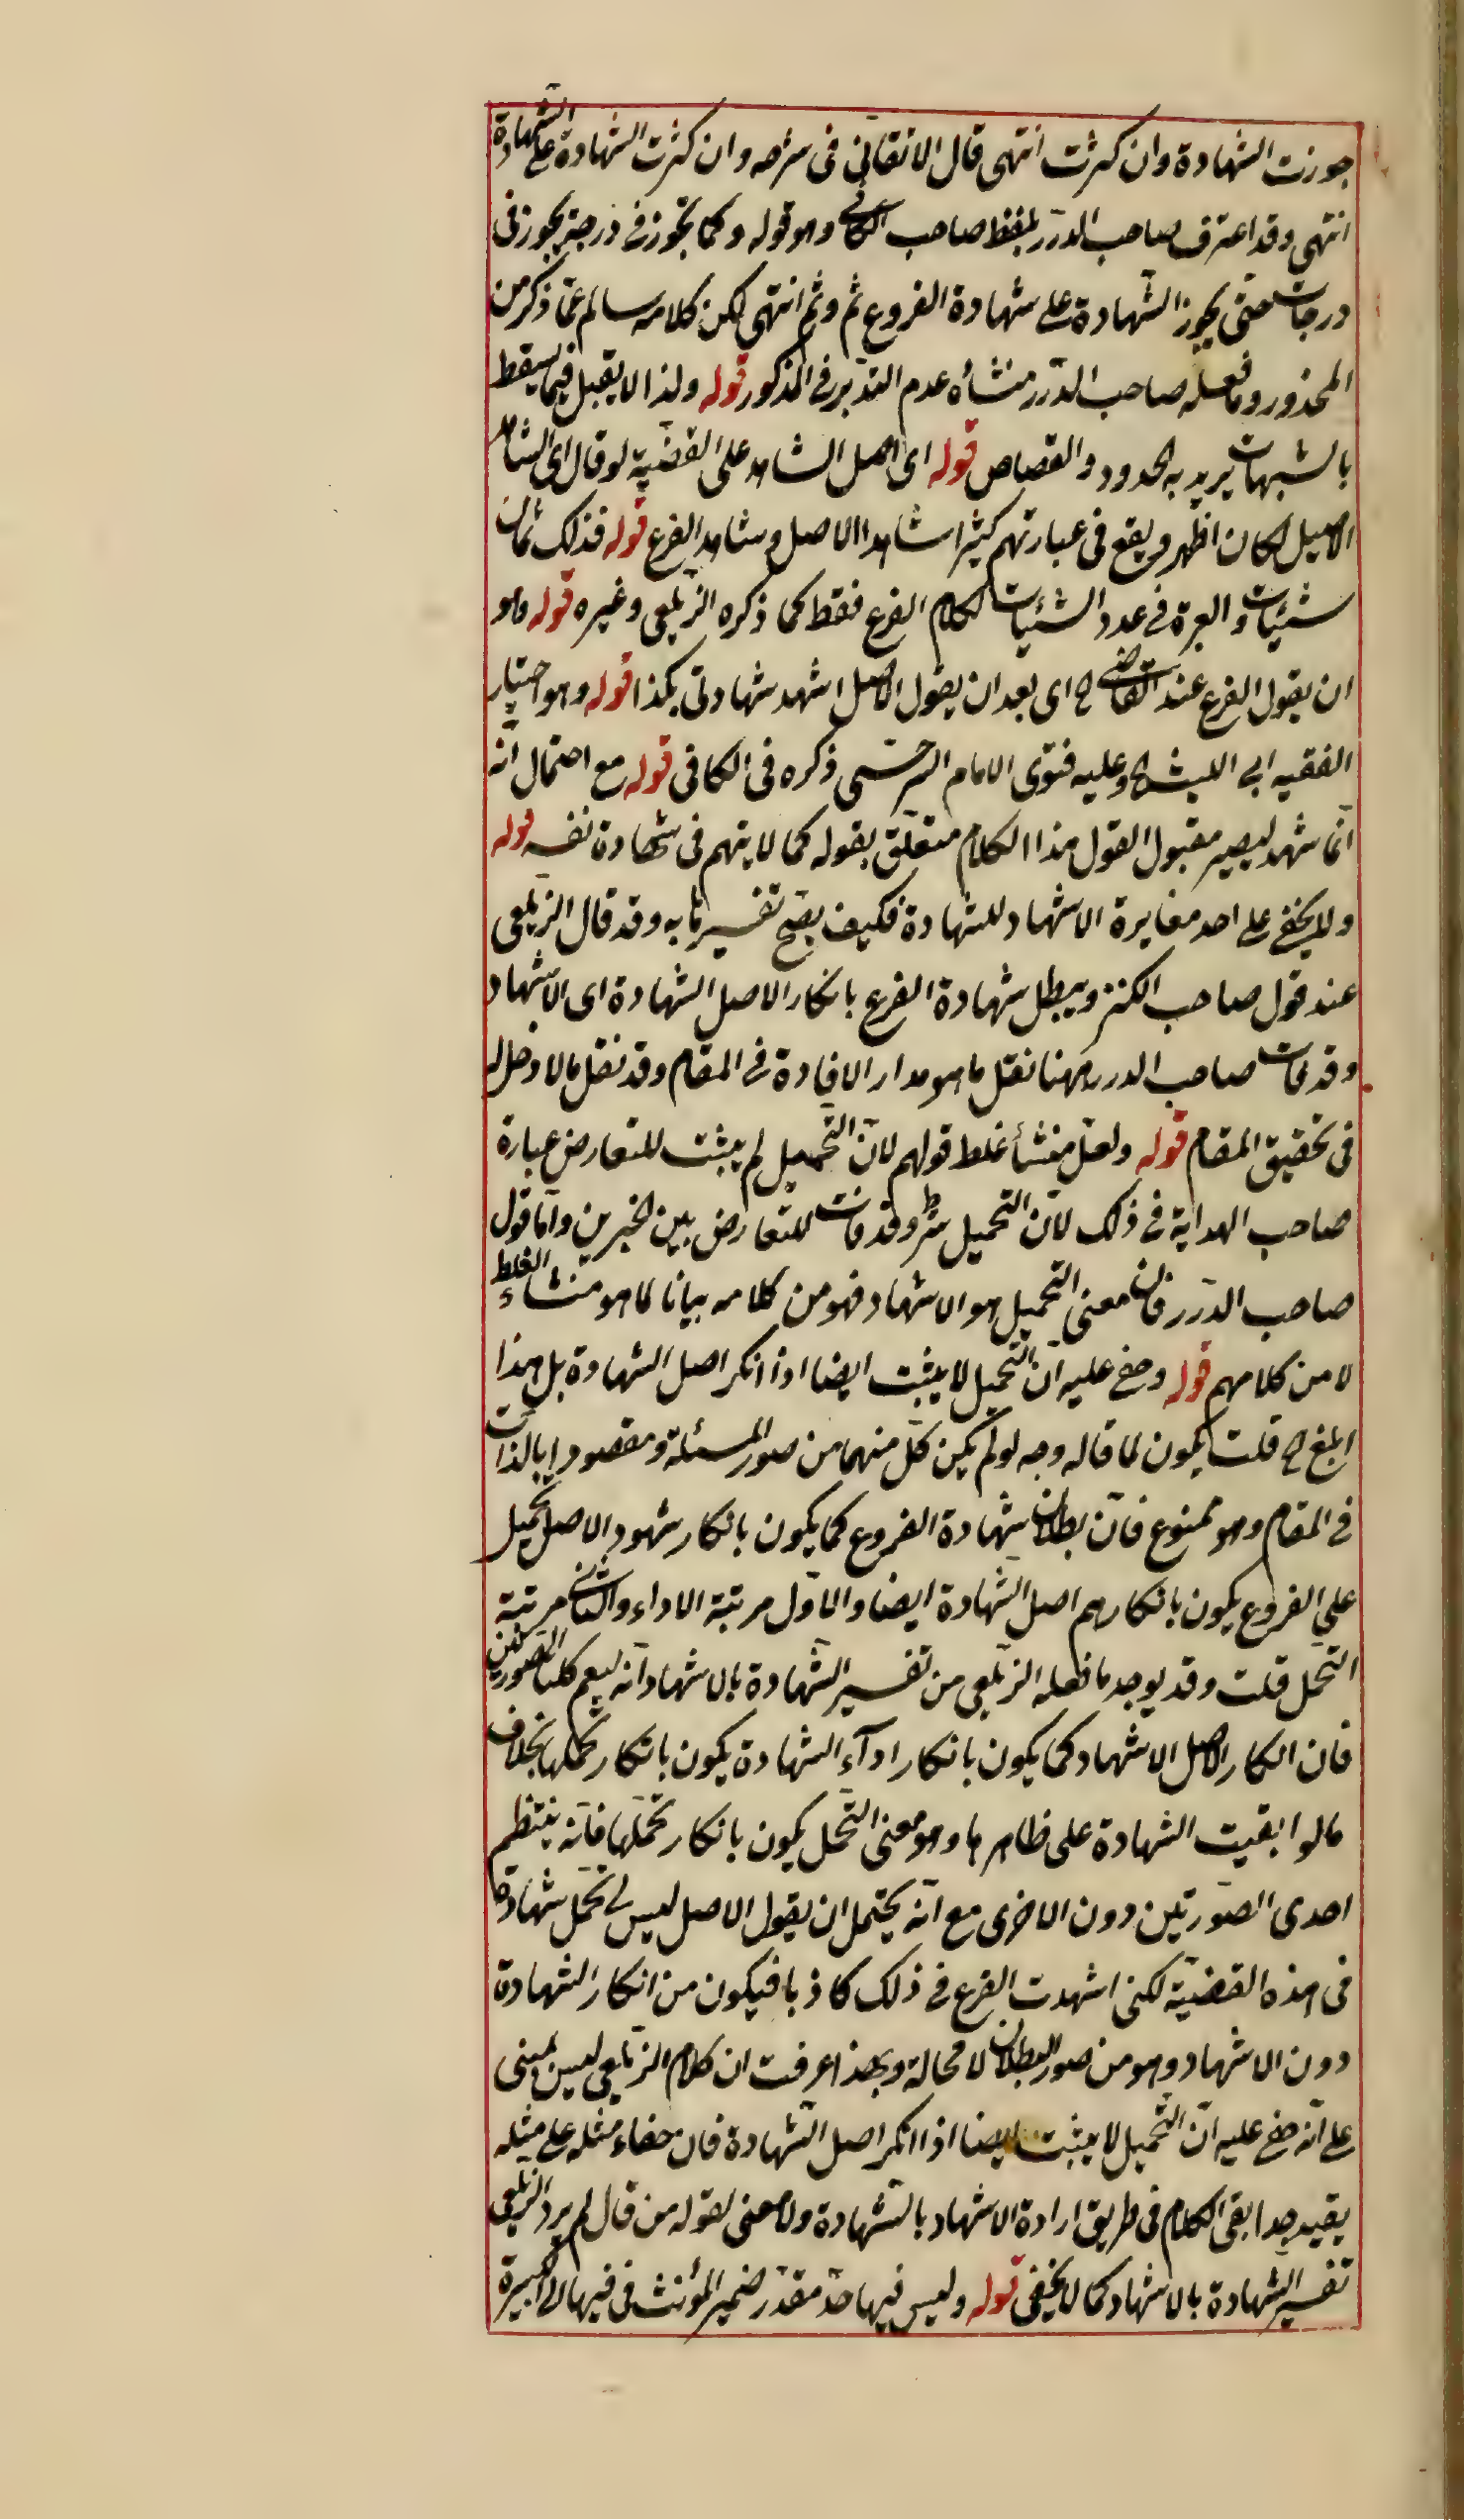 جوزت الشهادة وان كثرت انتهى قال الاتقانى فى شرحه وان كثرت الشهادة على الشهادة
انتهى وقد اعترف صاحب الدرر بلفظ صاحب الكافى وهو قوله وكما تجوز فى درجة يجوز فى
درجات حتى يجوز الشهادة على شهادة الفروع ثم وثم انتهى لكن كلامه سالم عما ذكر من
المحذور وما فعله صاحب الدرر منشأه عدم التدبر فى المذكور قوله ولذا لا يقبل فيما يسقط
بالشبهات يريد به الحدود والقصاص قوله اى اصل الشاهد على القضية لو قال اى الشاهد
الاصيل لكان اظهر ويقع فى عبارتهم كثيرا شاهدا الاصل وشاهد الفرع قوله فذلك ثمان
شئيات والعبرة فى عدد الشئيات لكلام الفرع فقط كما ذكره الزيلعى وغيره قوله وهو
ان يقول الفرع عند القاضى ح اى بعد ان يقول الاصل اشهد شهادتى بكذا قوله وهو اختيار
الفقيه ابى الليث ح وعليه فتوى الامام السرخسى ذكره فى الكافى قوله مع احتمال انه
انما شهد ليصير مقبول القول هذا الكلام متعلق بقوله كما لا يتهم فى شهادة نفسه قوله
ولا يخفى على احد مغايرة الاشهاد للشهادة فكيف يصح تفسيرها به وقد قال الزيلعى
عند قول صاحب الكنز ويبطل شهادة الفرع بانكار الاصل الشهادة اى الاشهاد
وقد فات صاحب الدرر ههنا نقل ما هو مدار الافادة فى المقام وقد نقل ما لا دخل له
فى تحقيق المقام قوله ولعل منشأ غلط قولهم لان التحميل لم يثبت للتعارض عبارة
صاحب الهداية فى ذلك لان التحميل شرط وقد فات للتعارض بين الخبرين واما قول
صاحب الدرر فان معنى التحميل هو الاشهاد فهو من كلامه بيانا لما هو منشاء الغلط
لا من كلامهم قوله وخفى عليه ان التحميل لا يثبت ايضا اذا انكر اصل الشهادة بل هذا
ابلغ ح قلت يكون لما قاله وجه لو لم يكن كل منهما من صور المسئلة ومقصودا بالذات
فى المقام وهو ممنوع فان بطلان شهادة الفروع كما يكون بانكار شهود الاصل تحميل
على الفروع يكون بانكارهم اصل الشهادة ايضا والاول مرتبة الاداء والثانى مرتبة
التحمل قلت وقد يوجد ما فعله الزيلعى من تفسير الشهادة بالاشهاد انه ليعم كلتا الصورتين
فان انكار الاصل الاشهاد كما يكون بانكار ادآء الشهادة يكون بانكار تحملها بخلاف
ما لو ابقيت الشهادة على ظاهرها وهو معنى التحمل يكون بانكار تحملها فانه ينتظم
احدى الصورتين دون الاخرى مع انه يحتمل ان يقول الاصل ليس لى تحمل شهادة
فى هذه القضية لكنى اشهدت الفرع فى ذلك كاذبا فيكون من انكار الشهادة
دون الاشهاد وهو من صور البطلان لا محالة وبهذا عرفت ان كلام الزيلعى ليس بمبنى
على انه خفى عليه ان التحميل لا يثبت ايضا اذا انكر اصل الشهادة فان خفاء مثله على مثله
بعيد جدا بقى الكلام فى طريق ارادة الاشهاد بالشهادة ولا معنى لقوله من قال لم يرد الزيلعى
تفسير الشهادة بالاشهاد كما لا يخفى قوله وليس فيها حد مقدر ضمير المؤنث فى فيها الى الكبيرة